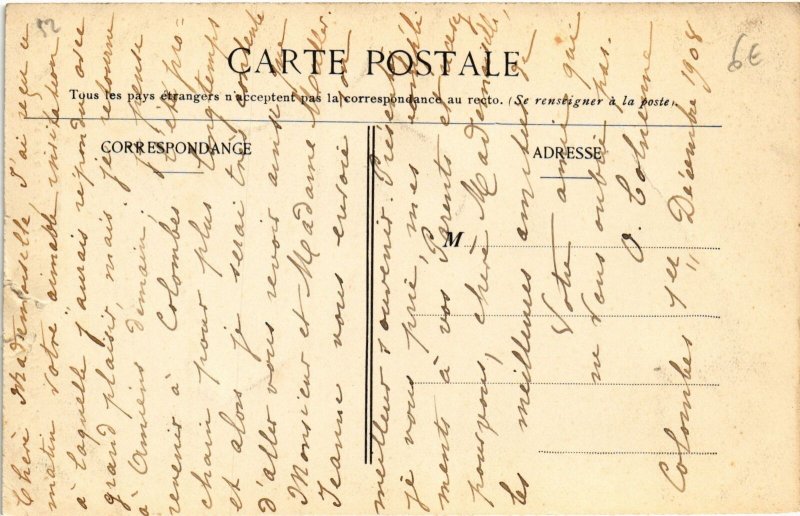 52
6€
CARTE POSTALE
Tous les pays étrangers n'acceptent pas la correspondance au recto. (Se renseigner à la poste).
CORRESPONDANCE
ADRESSE
M
Chère Mademoiselle J'ai reçu ce
matin votre aimable invitation
à laquelle j'aurais répondu avec
grand plaisir, mais je retourne
à Amiens demain; je pense
revenir à Colombes l'été pro-
chain pour plus longtemps
et alors je serai très contente
d'aller vous revoir ainsi que
Monsieur et Madame Moller.
Jeanne vous envoie son
meilleur souvenir. Présentez
je vous prie, mes compli
ments à vos Parents et
pour vous, chère Mademoiselle,
les meilleures amitiés de
Votre amie qui
ne vous oublie pas.
O. Colnenne
Colombes 1er Décembre 1908